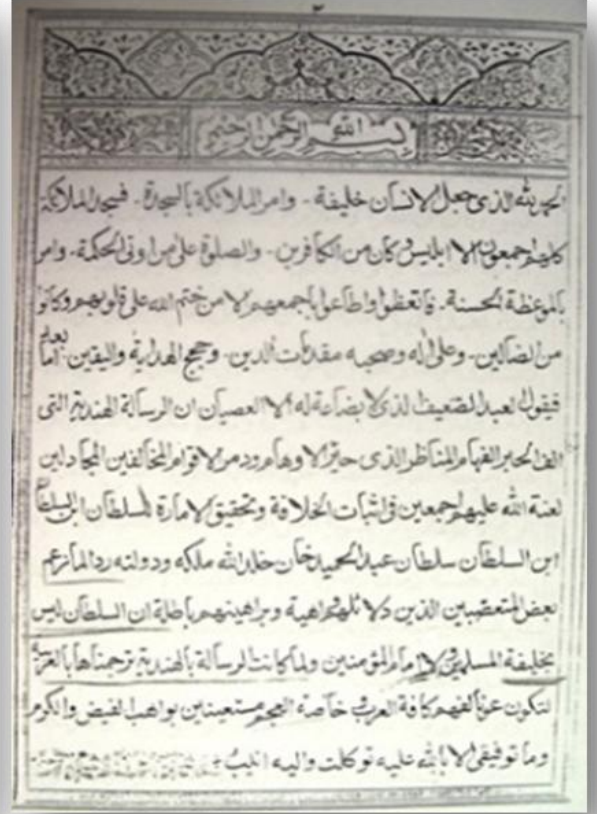 ٢
بسم الله الرحمن الرحيم
الحمد لله الذى جعل الانسان خليفة - وامر الملائكة بالسجدة - فسجد الملائكة
كلهم اجمعون الا ابليس وكان من الكافرين - والصلوة على من اوتى الحكمة - وامر
بالموعظة الحسنة - فاتعظوا واطاعوا باجمعهم الا من ختم الله على قلوبهم وكانوا
من الضالين - وعلى اله وصحبه مقدمات الدين - وحجج الهداية واليقين - اما بعد
فيقول العبد الضعيف الذى لا بضاعة له الا العصيان ان الرسالة الهندية التى
الفها الحبر الفهام المناظر الذى حير الاوهام ورد من الاقوام المخالفين المجادلين
لعنة الله عليهم اجمعين فى اثبات الخلافة وتحقيق الامارة للسلطان ابن السلطان
ابن السلطان سلطان عبد الحميد خان خلد الله ملكه ودولته رد المازعم
بعض المتعصبين الذين دلائلهم واهية وبراهينهم باطلة ان السلطان ليس
بخليفة المسلمين ولا امام المؤمنين ولما كانت الرسالة بالهندية ترجمناها بالعربية
لتكون عونا لفهم كافة العرب خاصة العجم مستعينين بواهب الفيض والكرم
وما توفيقى الا بالله عليه توكلت واليه انيب